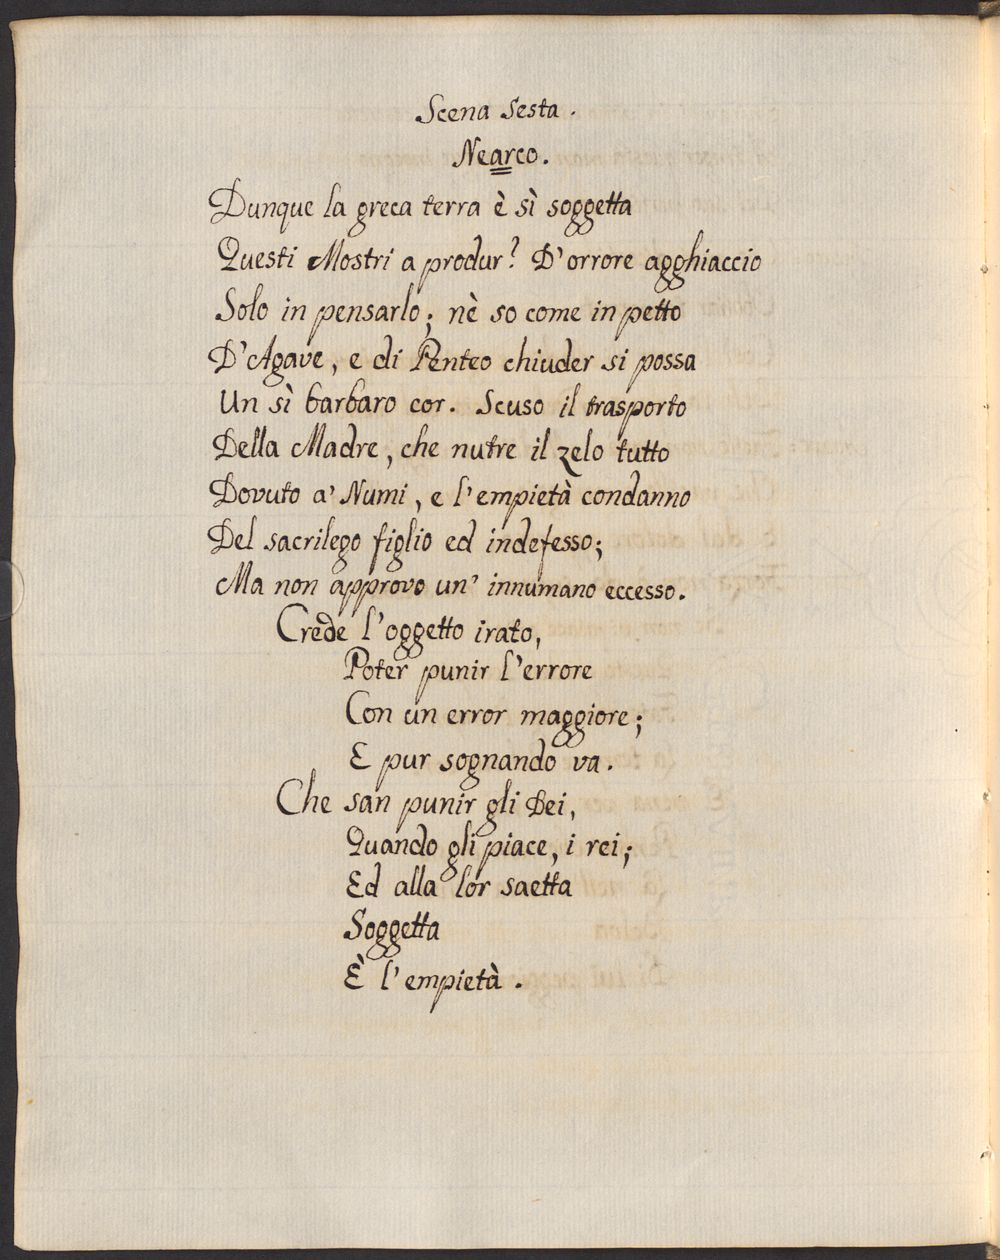 Scena Sesta.
Nearco.
Dunque la greca terra è sì soggetta
Questi Mostri a produr? D'orrore agghiaccio
Solo in pensarlo; nè so come in petto
D'Agave, e di Penteo chiuder si possa
Un sì barbaro cor. Scuso il trasporto
Della Madre, che nutre il zelo tutto
Dovuto a' Numi, e l'empietà condanno
Del sacrilego figlio ed indefesso;
Ma non approvo un' innumano eccesso.
Crede l'oggetto irato,
Poter punir l'errore
Con un error maggiore;
E pur sognando va.
Che san punir gli Dei,
Quando gli piace, i rei;
Ed alla lor saetta
Soggetta
È l'empietà.